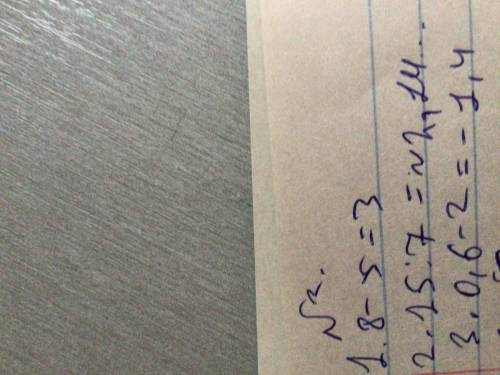 №2.
1. 8-5=3
2. 15:7=≈2,14...
3. 0,6-2=-1,4